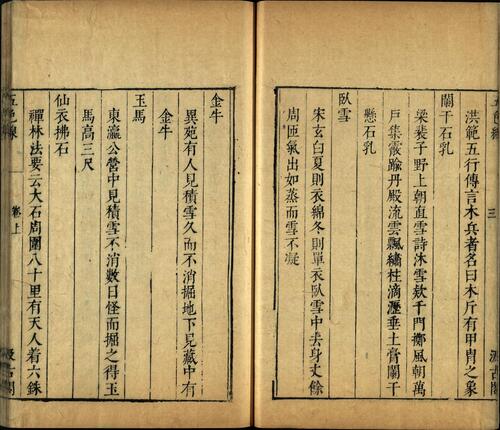 五色線 三 汲古閣
洪範五行傳言木兵者名曰木斤有甲冑之象
闌干石乳
梁裴子野上朝直雪詩沐雪欸千門擲風朝萬
戶集霰踰丹殿流雲飄繡柱滴瀝垂土膏闌干
懸石乳
臥雪
宋玄白夏則衣綿冬則單衣臥雪中去身丈餘
周匝氣出如蒸而雪不凝
金牛
異苑有人見積雪久而不消掘地下見藏中有
金牛
玉馬
東瀛公營中見積雪不消數日怪而掘之得玉
馬高三尺
仙衣拂石
禪林法要云大石周圍八十里有天人着六銖
五色線 卷上 汲古閣